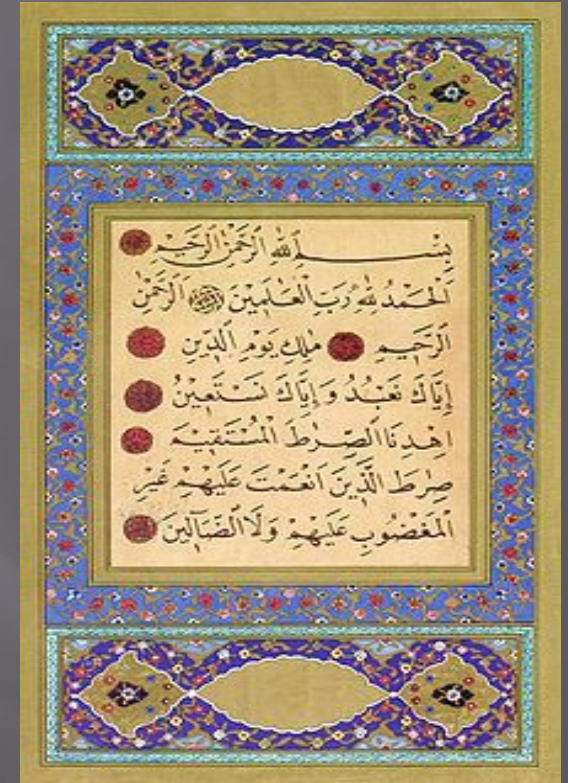 بِسْمِ اللّٰهِ الرَّحْمٰنِ الرَّحِيْمِ
اَلْحَمْدُ لِلّٰهِ رَبِّ الْعَالَمِيْنَ الرَّحْمٰنِ
الرَّحِيْمِ مٰلِكِ يَوْمِ الدِّيْنِ
إِيَّاكَ نَعْبُدُ وَإِيَّاكَ نَسْتَعِيْنُ
اِهْدِنَا الصِّرٰطَ الْمُسْتَقِيْمَ
صِرٰطَ الَّذِيْنَ اَنْعَمْتَ عَلَيْهِمْ غَيْرِ
الْمَغْضُوْبِ عَلَيْهِمْ وَلَا الضَّآلِّيْنَ